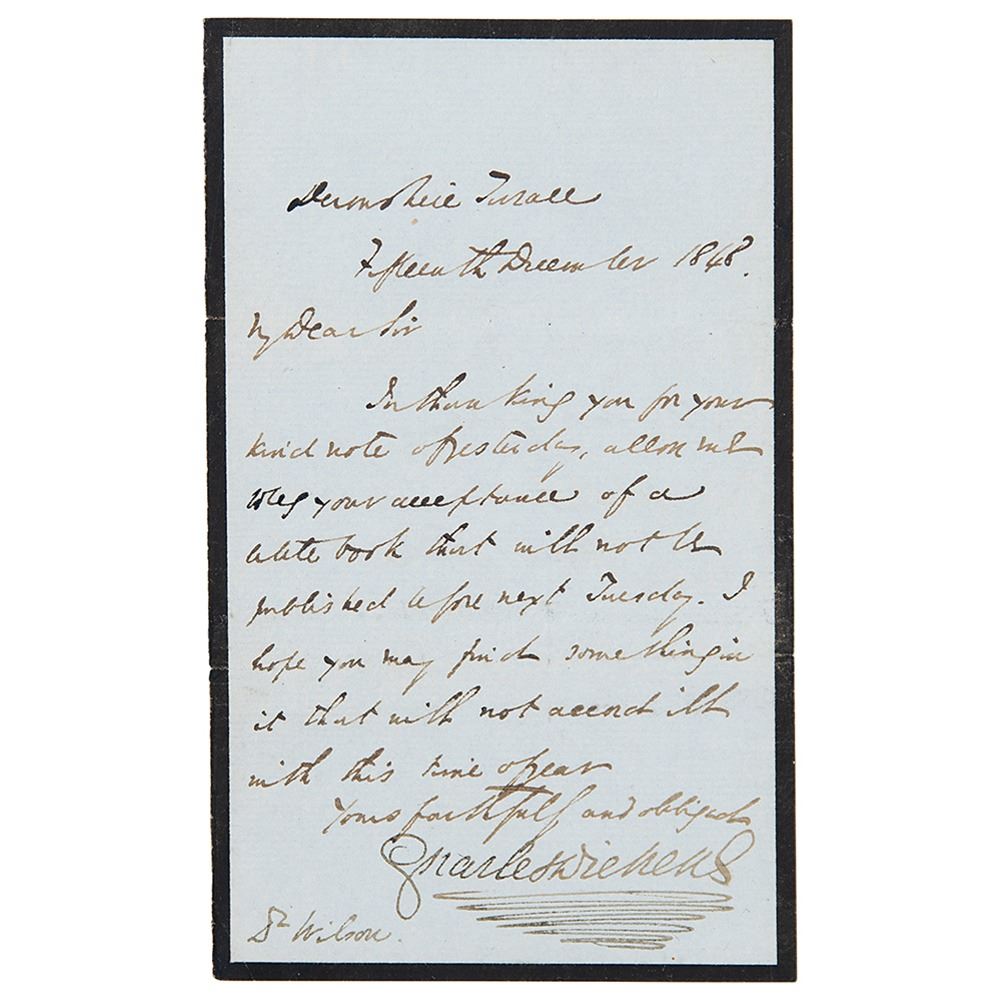 Devonshire Terrace
Fifteenth December 1848.
My Dear Sir
In thanking you for your
kind note of yesterday, allow me
to beg your acceptance of a
little book that will not be
published before next Tuesday. I
hope you may find something in
it that will not accord ill
with this time of year
Yours faithfully and obliged
Charles Dickens
Dr Wilson.